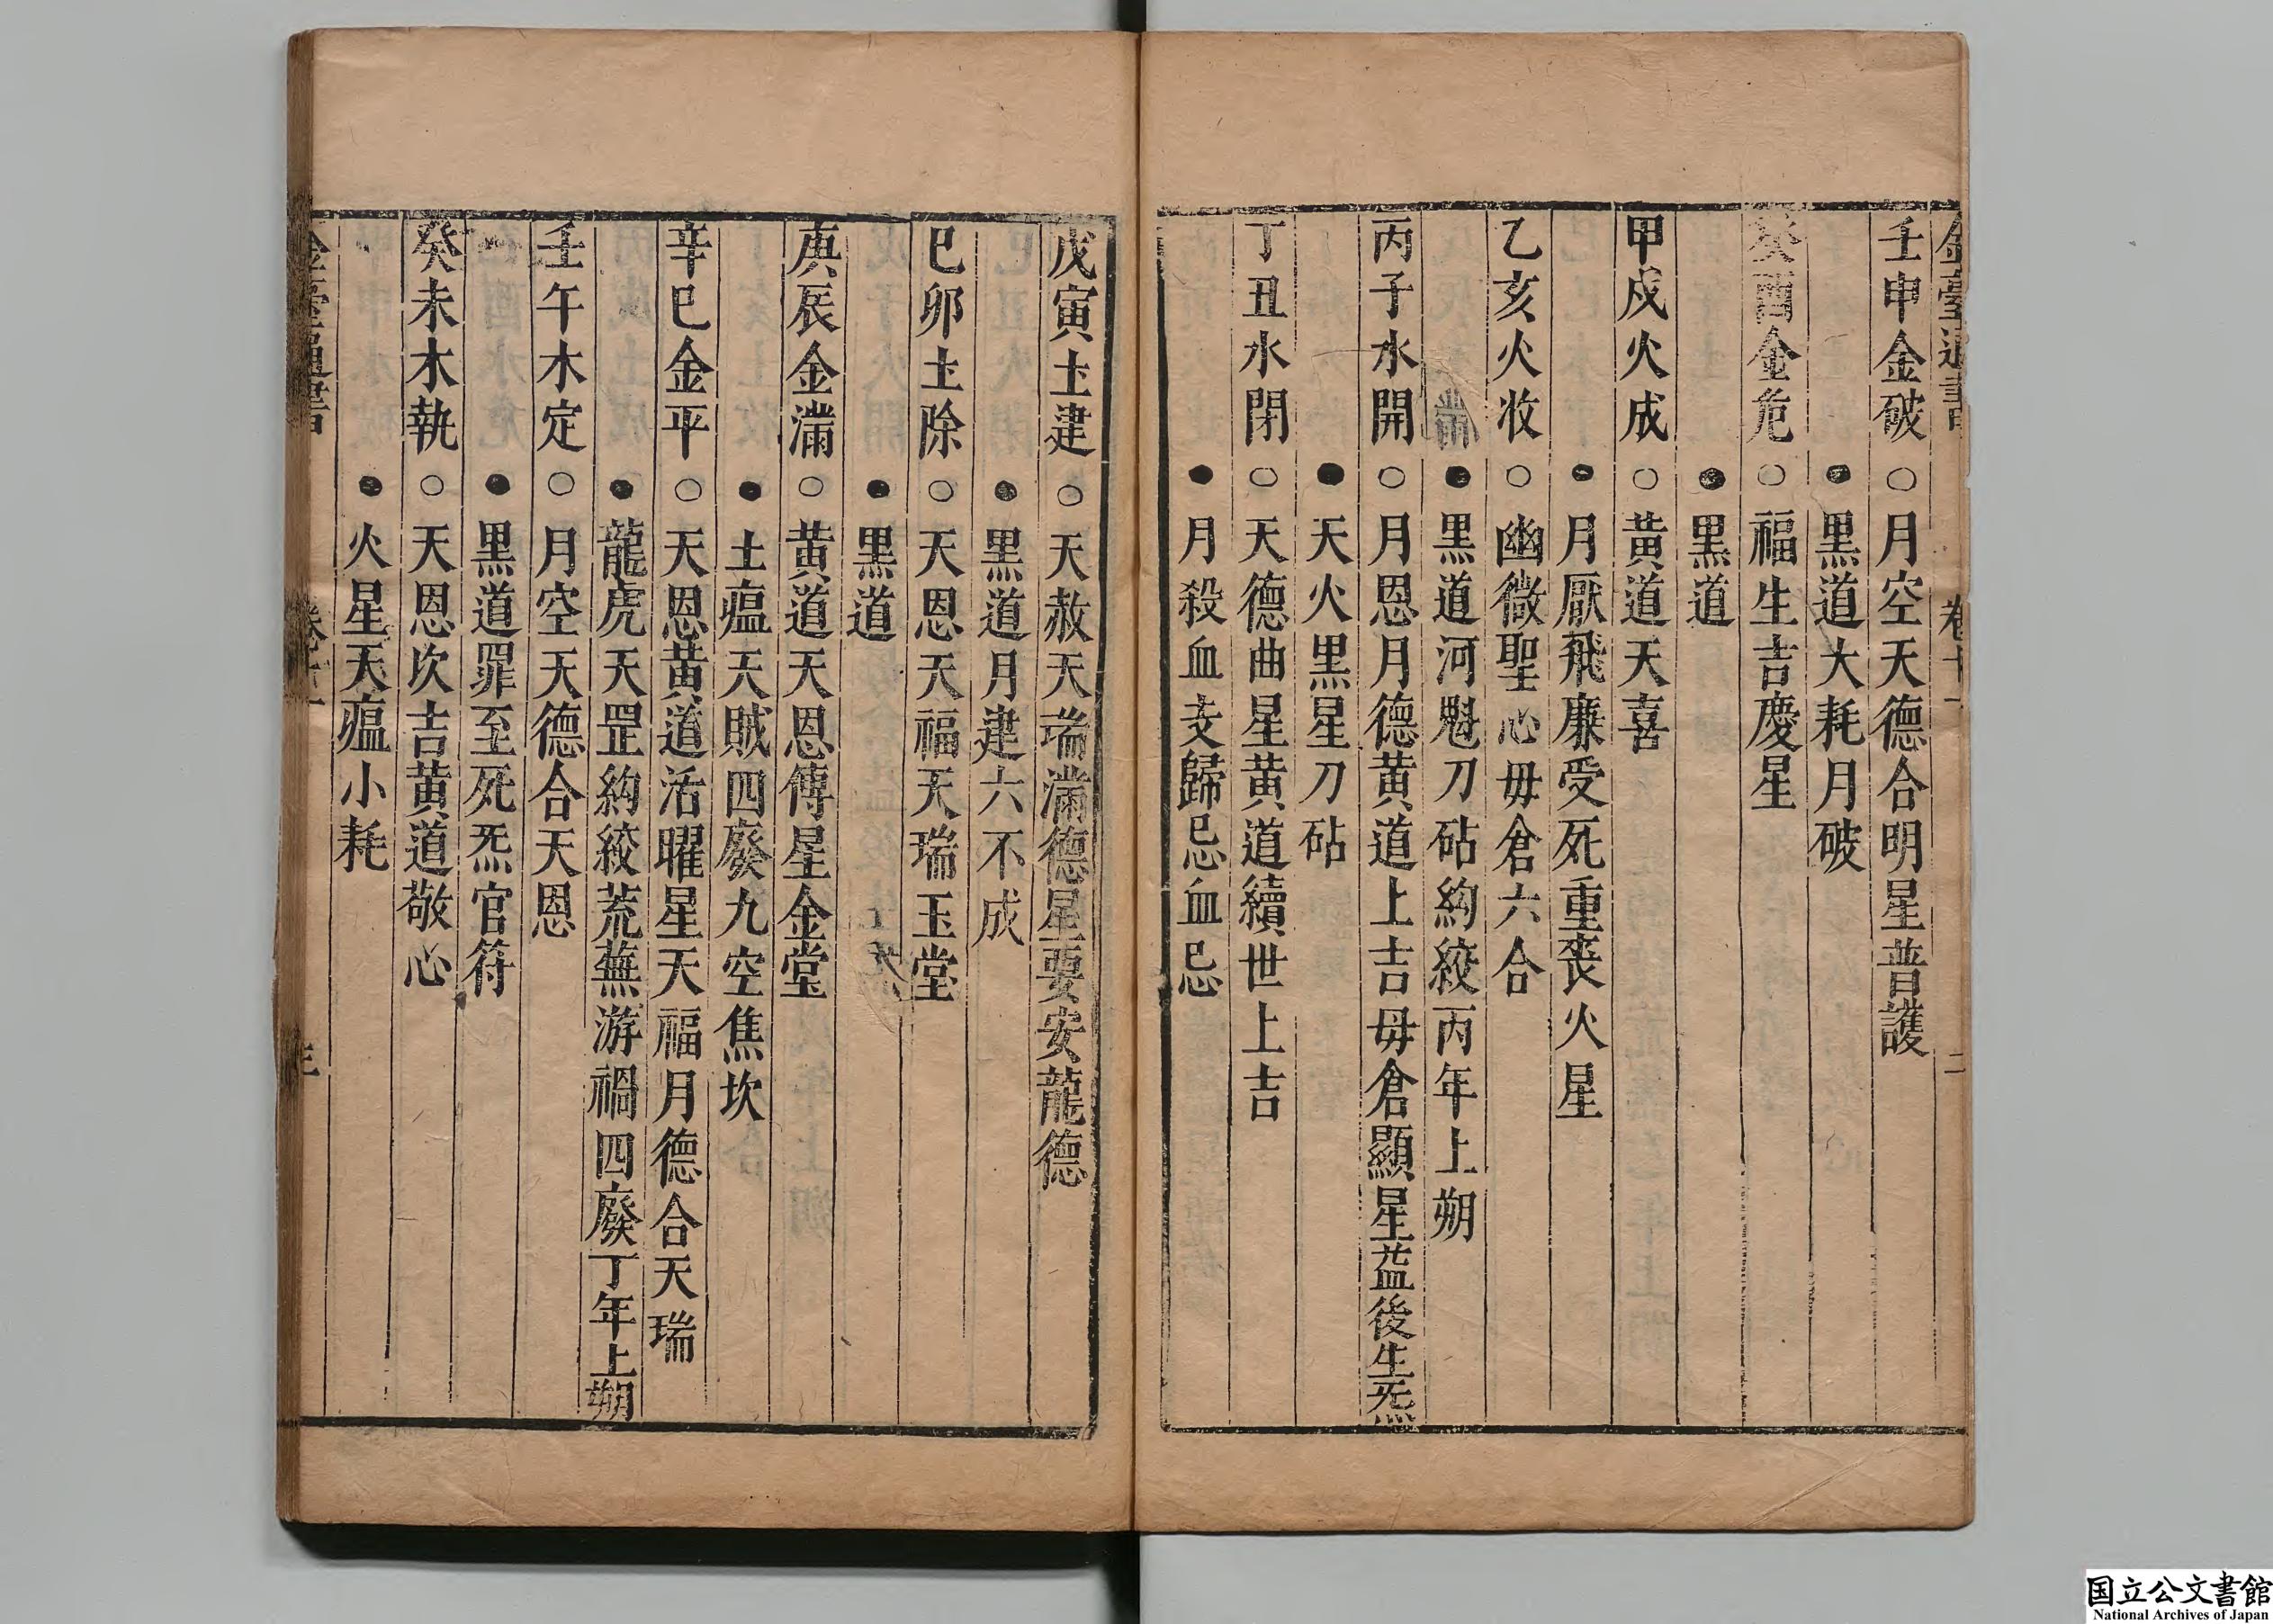 金臺通書 卷十一 二
壬申金破○月空天德合明星普護
●黒道大耗月破
癸酉金危○福生吉慶星
●黒道
甲戍火成○黄道天喜
●月厭飛廉受死重喪火星
乙亥火收○幽微聖心毋倉六合
●黒道河魁刀砧絇絞丙年上朔
丙子水開○月恩月德黄道上吉毋倉顯星益後生炁
●天火黒星刀砧
丁丑水閉○天德曲星黄道續世上吉
●月殺血支歸忌血忌
戊寅土建○天赦天瑞滿德星要安龍德
●黒道月建六不成
巳卯土除○天恩天福天瑞玉堂
●黒道
庚辰金滿○黄道天恩傳星金堂
●土瘟天賊四廢九空焦坎
辛巳金平○天恩黄道活曜星天福月德合天瑞
●龍虎天罡絇絞荒蕪游禍四廢丁年上朔
壬午木定○月空天德合天恩
●黒道罪至死炁官符
癸未木執○天恩次吉黄道敬心
●火星天瘟小耗
金臺通書 卷十一 三
国立公文書館
National Archives of Japan